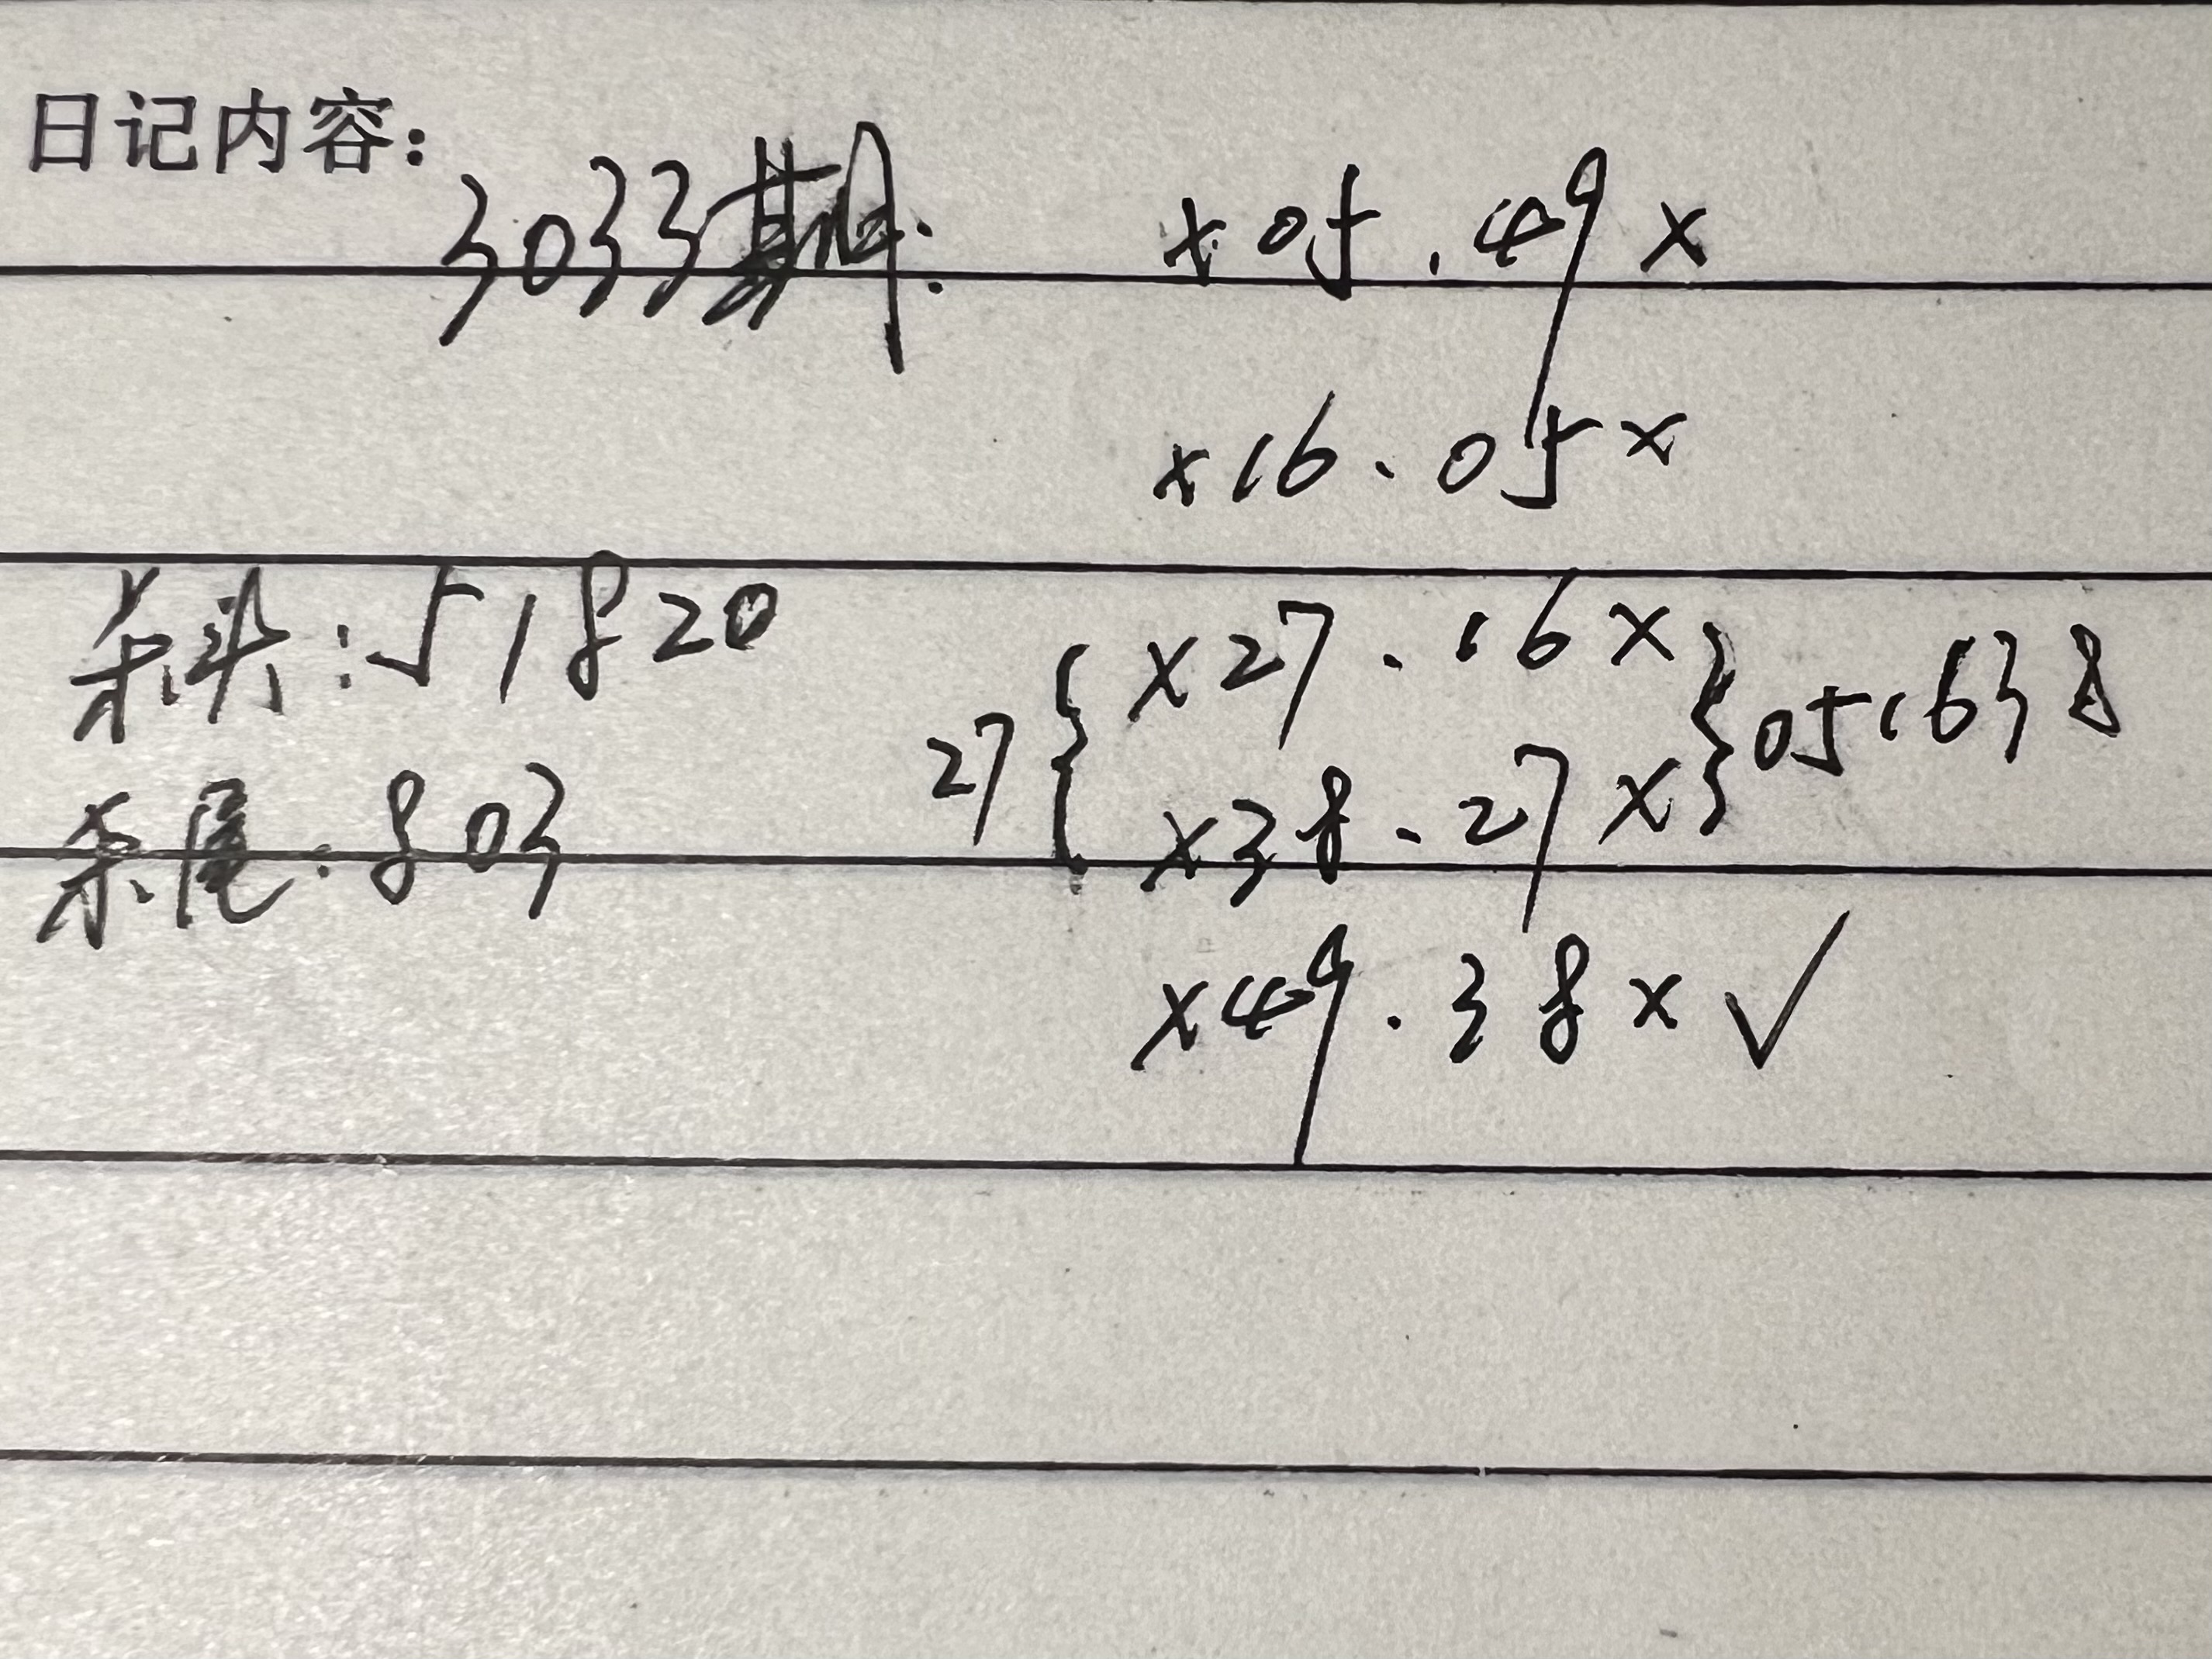 日记内容:
3033期: x05.49x
x16.05x
杀头:51820
27{x27.16x
x38.27x}051638
杀尾:803
x49.38x√